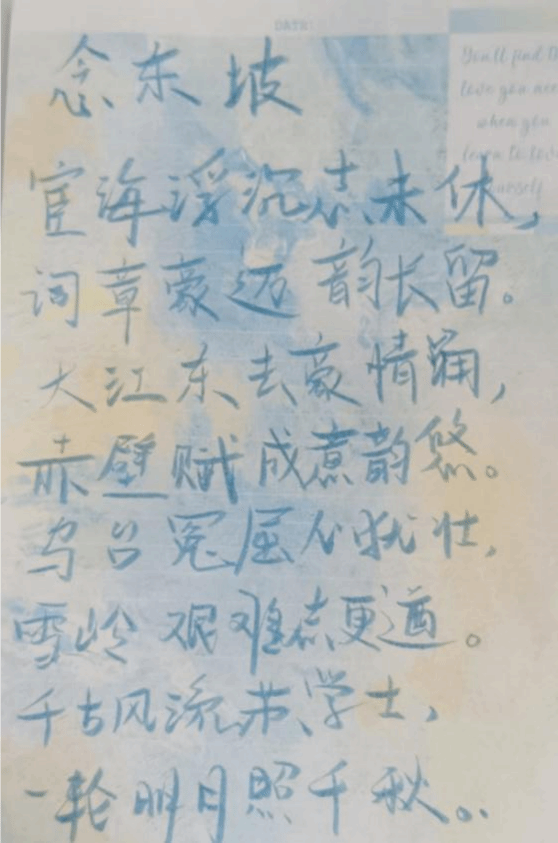 DATE:
You'll find the
love you nee
when you
learn to love
yourself
念东坡
宦海浮沉志未休,
词章豪迈韵长留。
大江东去豪情涌,
赤壁赋成意韵悠。
乌台冤屈心犹壮,
雪岭艰难志更遒。
千古风流苏学士,
一轮明月照千秋。